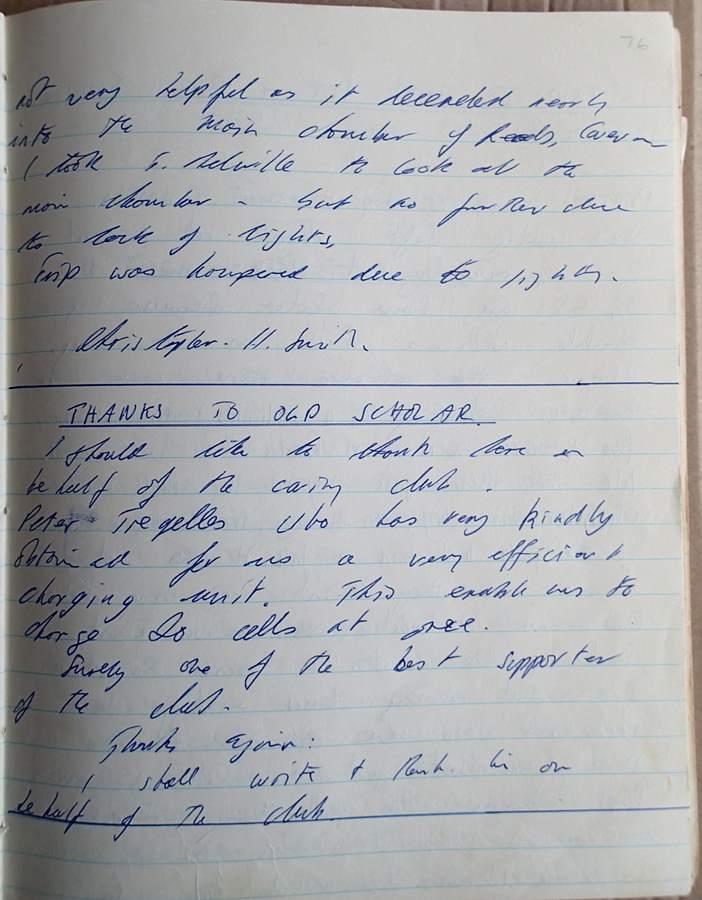 76
not very helpful as it decended nearly
into the main chamber of Reeds, Cavern
I took T. Melville to look at the
main chamber - but no further due
to lack of lights,
Trip was hampered due to lights.
Christopher. H. Smith.
THANKS TO OLD SCHOLAR.
I should like to thank here on
behalf of the caving club.
Peter Tregelles Who has very kindly
obtained for us a very efficient
charging unit. This enable us to
charge 20 cells at once.
Surely one of the best supporter
of the club.
Thanks again:
I shall write & thank him on
behalf of the club